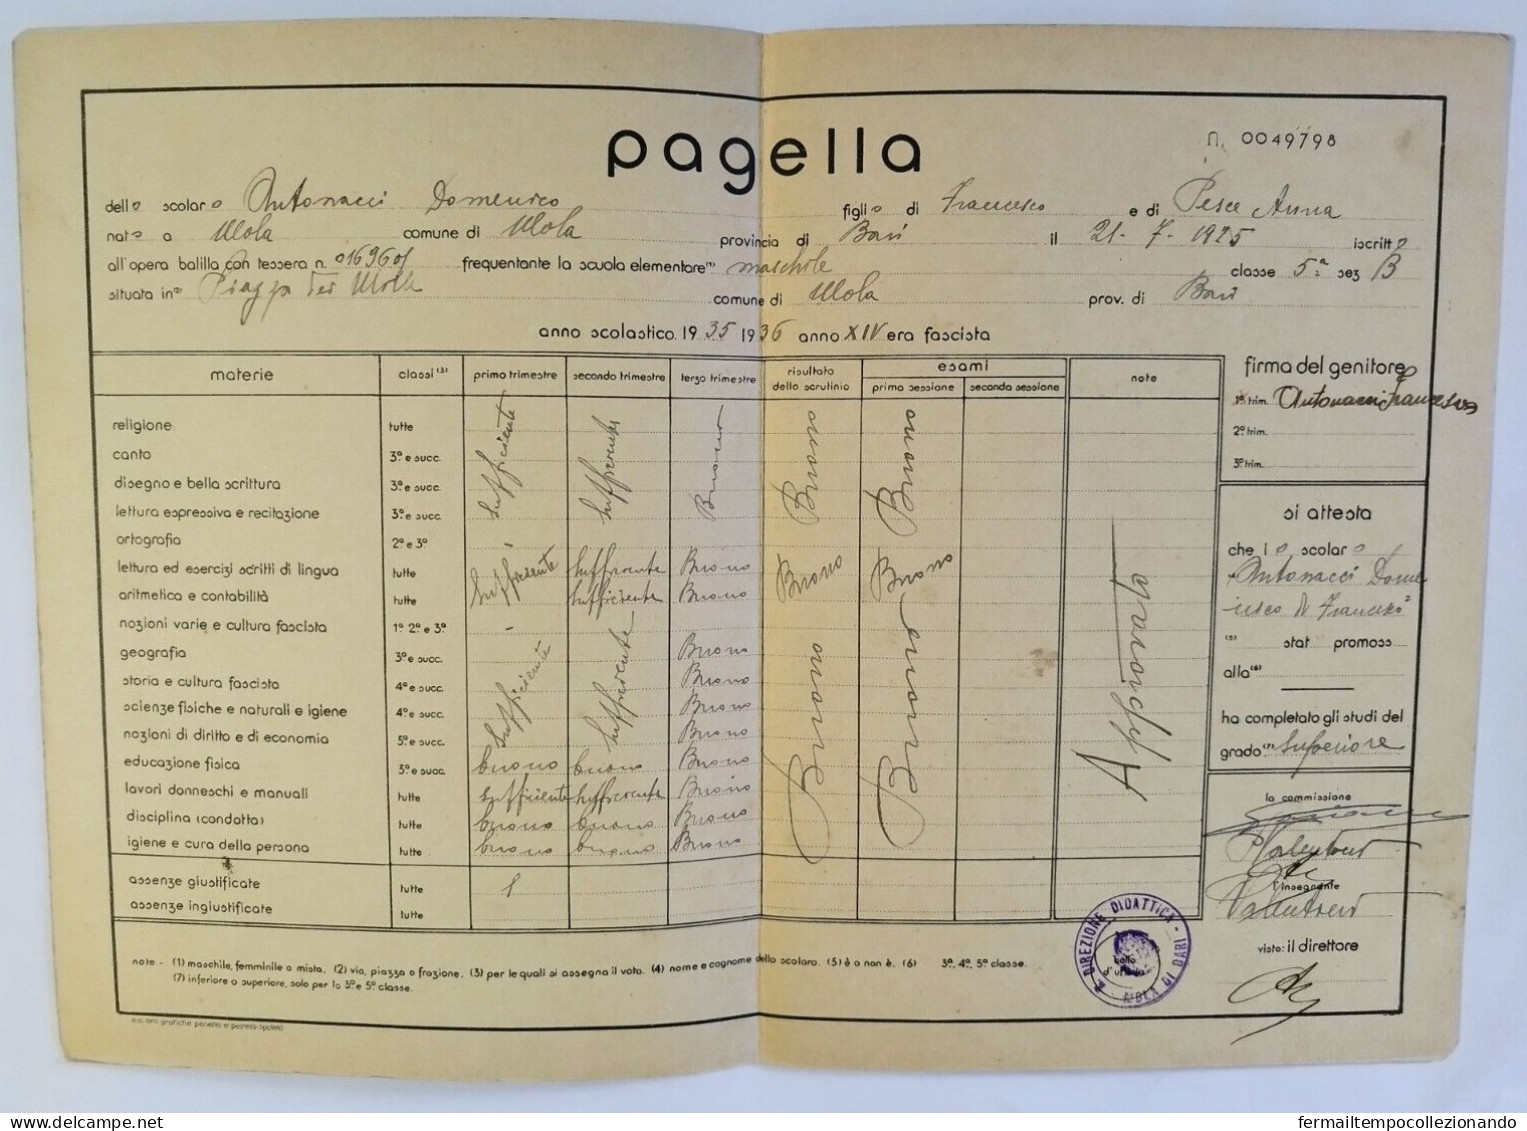 pagella
n. 0049798
dello scolaro Antonacci Domenico figlio di Francesco e di Pesce Anna
nato a Mola comune di Mola provincia di Bari il 21-7-1925 iscritto
all'opera balilla con tessera n. 0169601 frequentante la scuola elementare (1) maschile classe 5ª sez B
situata in (2) Piazza dei Mille comune di Mola prov. di Bari
anno scolastico 1935 1936 anno XIV era fascista
materie classi (3) primo trimestre secondo trimestre terzo trimestre risultato dello scrutinio esami prima sessione seconda sessione note
religione tutte Sufficiente Sufficiente Buono Buono Buono Approvato
canto 3ª e succ.
disegno e bella scrittura 3ª e succ.
lettura espressiva e recitazione 3ª e succ.
ortografia 2ª e 3ª -
lettura ed esercizi scritti di lingua tutte Sufficiente Sufficiente Buono Buono Buono
aritmetica e contabilità tutte Sufficiente Buono Buono Buono
nozioni varie e cultura fascista 1ª 2ª e 3ª -
geografia 3ª e succ. Sufficiente Sufficiente Buono
storia e cultura fascista 4ª e succ. Buono
scienze fisiche e naturali e igiene 4ª e succ. Buono
nozioni di diritto e di economia 5ª e succ. Buono
educazione fisica 3ª e succ. buono buono Buono
lavori donneschi e manuali tutte sufficiente sufficiente Buono
disciplina (condotta) tutte buono buono Buono
igiene e cura della persona tutte buono buono Buono
assenze giustificate tutte 1
assenze ingiustificate tutte
firma del genitore
1º trim. Antonacci Francesco
2º trim.
3º trim.
si attesta
che lo scolaro
Antonacci Dome
nico di Francesco
(5) stat promoss
alla (6)
ha completato gli studi del
grado (7) Superiore
la commissione
l'insegnante
visto: il direttore
R. DIREZIONE DIDATTICA - MOLA DI BARI
bollo
d'ufficio
note - (1) maschile, femminile o mista. (2) via, piazza o frazione. (3) per le quali si assegna il voto. (4) nome e cognome dello scolaro. (5) è o non è. (6) 3ª, 4ª, 5ª classe.
(7) inferiore o superiore, solo per la 3ª e 5ª classe.
delcampe.net
fermailtempocollezionando